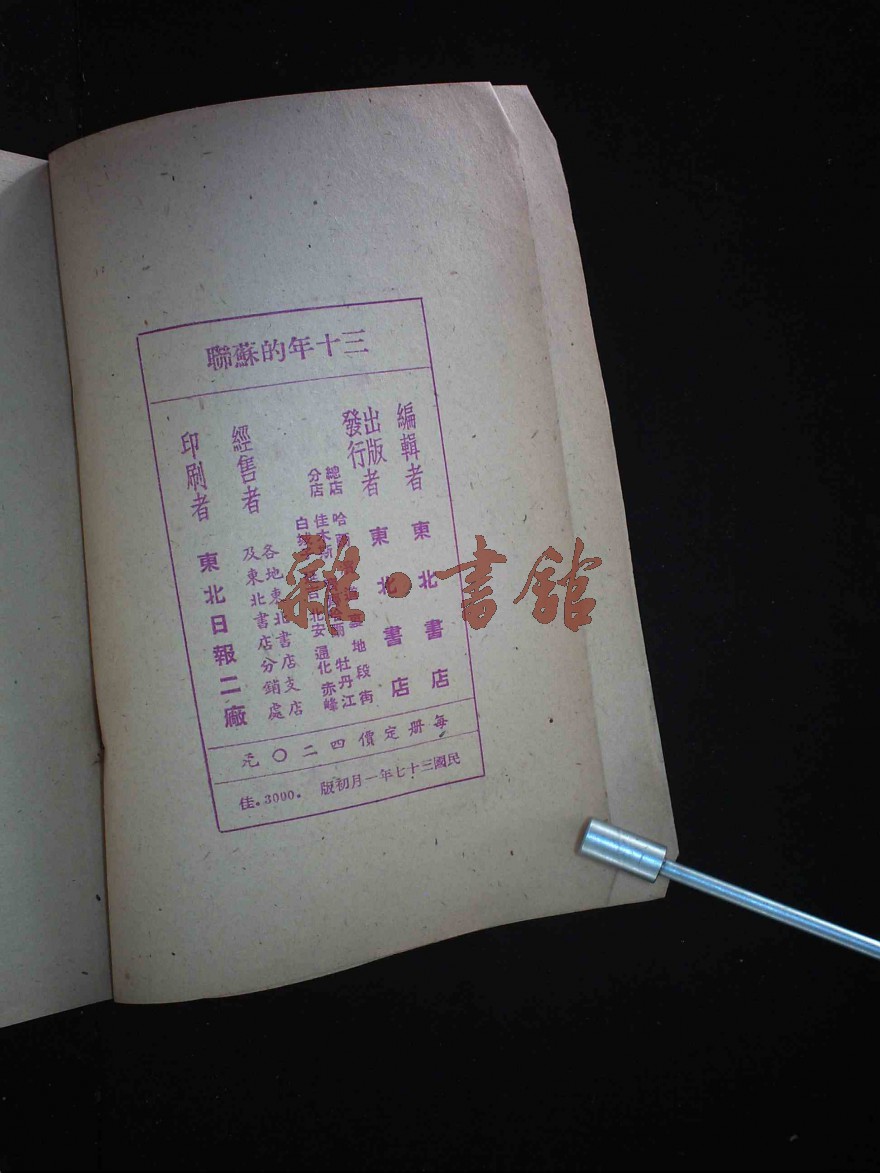 三十年的蘇聯
編輯者 東北書店
出版者 東北書店
發行
總店 哈 道裏地段街
分店 佳木斯 齊齊哈爾 牡丹江
白城 延吉 北安 通化 赤峰
經售者 各地東北書店支店
及東北書店分銷處
印刷者 東北日報二廠
每册定價四二〇元
民國三十七年一月初版 .3000.佳
雜·書館